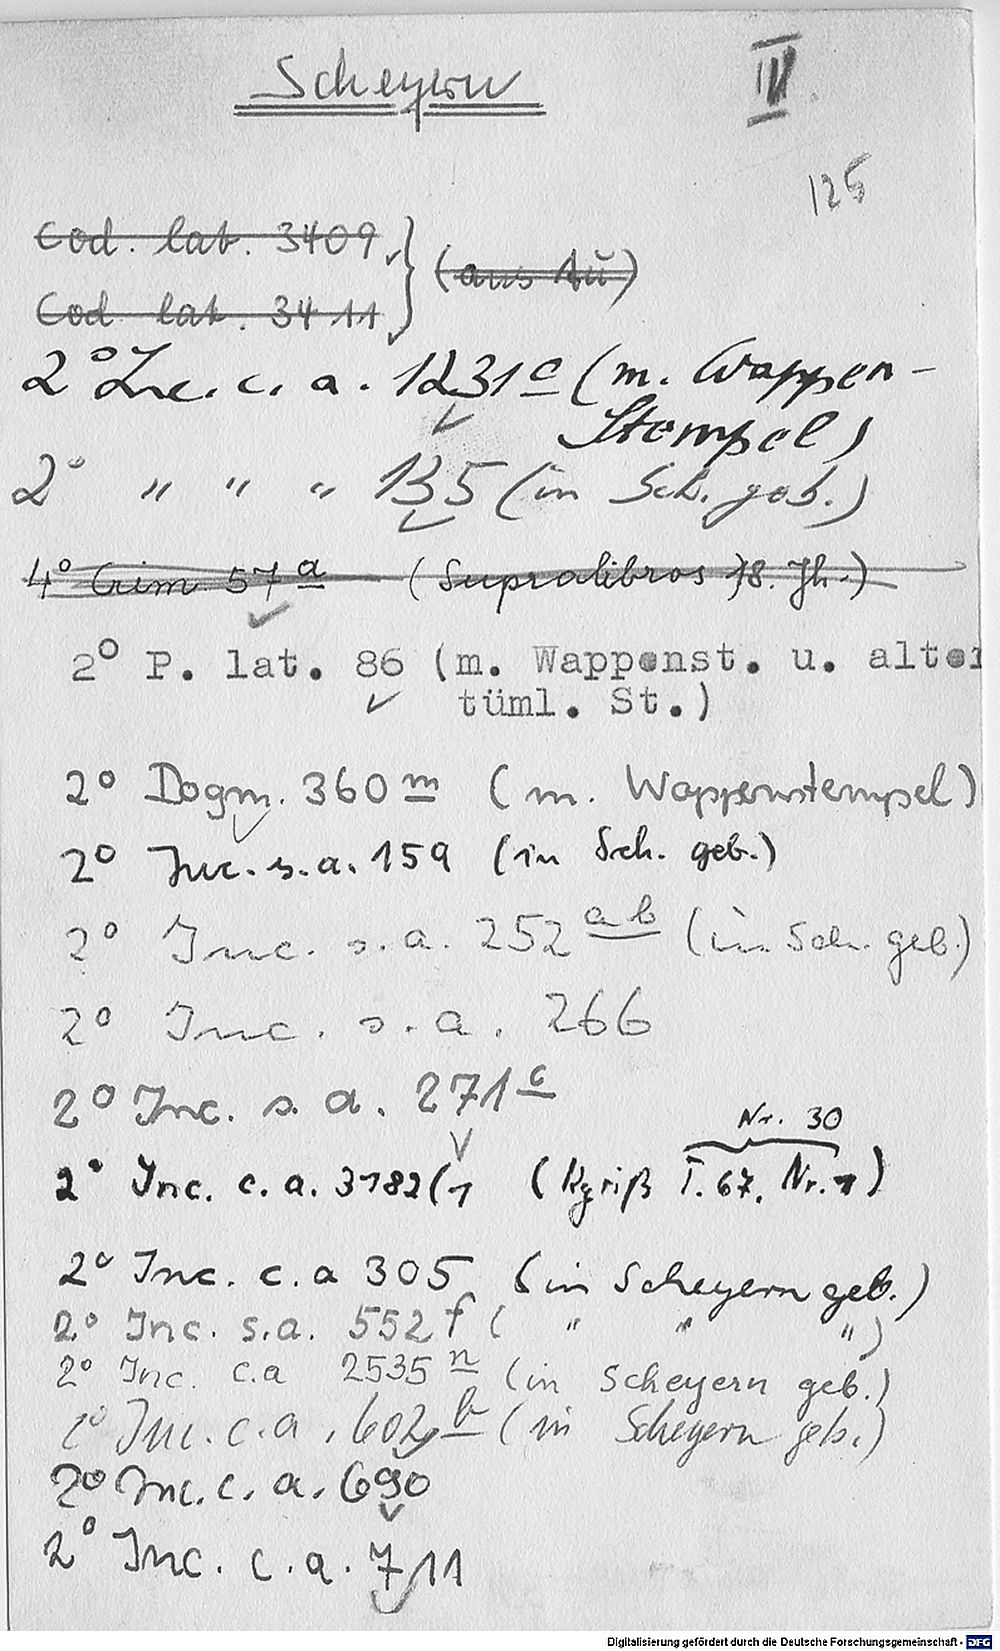 Scheyern
IV
125
Cod. lat. 3409
(aus Tü)
Cod. lat. 3411
2° Inc. c. a. 1231 c (m. Wappen-
Stempel)
2° " " " 135 (in Sch. geb.)
4° Crim. 57 a (Supralibros 18. Jh.)
2° P. lat. 86 (m. Wappenst. u. alter
tüml. St.)
2° Dogm. 360 m (m. Wappenstempel)
2° Inc. s. a. 159 (in Sch. geb.)
2° Inc. s. a. 252 a b (in Sch. geb.)
2° Inc. s. a. 266
2° Inc. s. a. 271 c
Nr. 30
2° Inc. c. a. 3182(1 (Kyriß T. 67, Nr. 1)
2° Inc. c. a 305 (in Scheyern geb.)
2° Inc. s.a. 552 f ( " " ")
2° Inc. c.a 2535 n (in Scheyern geb.)
2° Inc. c. a. 602 b (in Scheyern geb.)
2° Inc. c. a. 690
2° Inc. c. a. 711
Digitalisierung gefördert durch die Deutsche Forschungsgemeinschaft - DFG